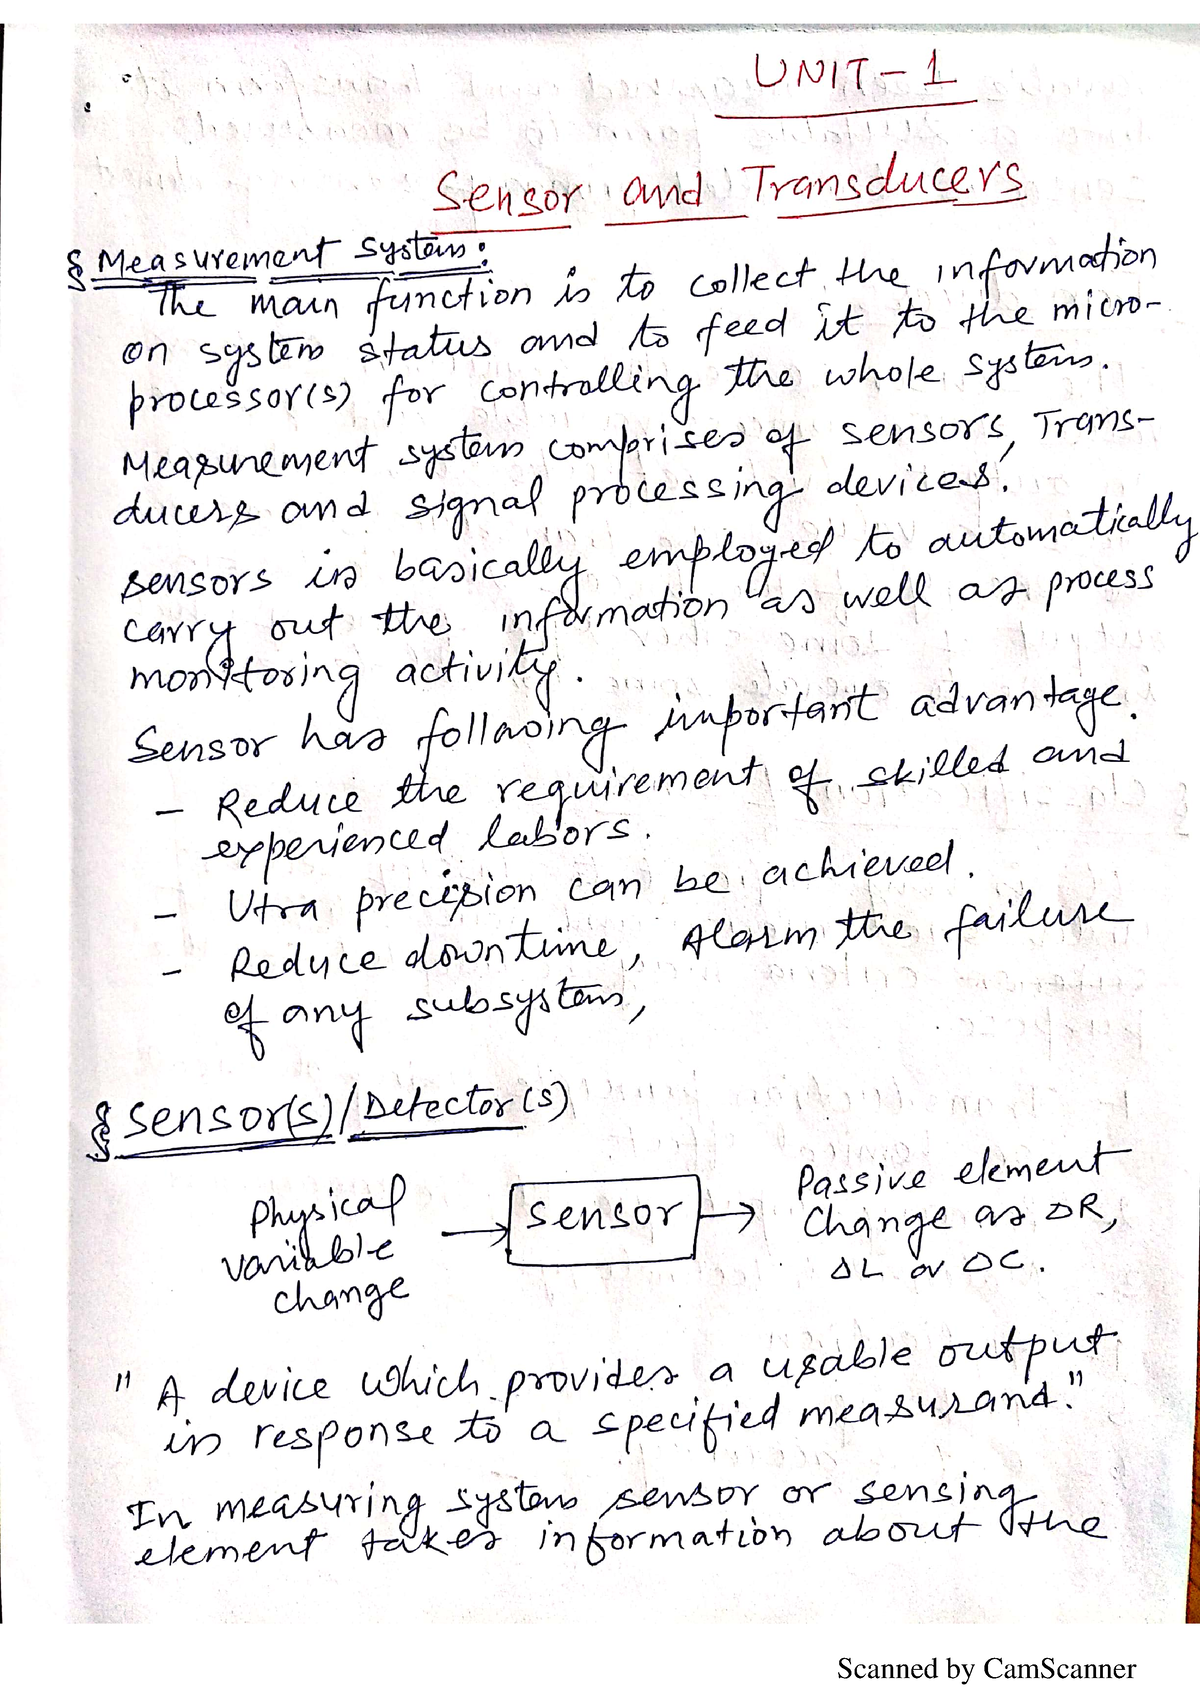 UNIT-1
Sensor and Transducers
§ Measurement System:
The main function is to collect the information
on system status and to feed it to the micro-
processor(s) for controlling the whole system.
Measurement system comprises of sensors, Trans-
ducers and signal processing devices.
sensors is basically employed to automatically
carry out the information as well as process
monitoring activity.
Sensor has following important advantage.
- Reduce the requirement of skilled and
experienced labors.
- Utra precision can be achieved.
- Reduce downtime, Alarm the failure
of any subsystem,
§ Sensor(s)/Detector(s)
Physical
variable
change
Sensor
Passive element
Change as ΔR,
ΔL or ΔC.
" A device which provides a usable output
in response to a specified measurand."
In measuring system sensor or sensing
element takes information about the
Scanned by CamScanner